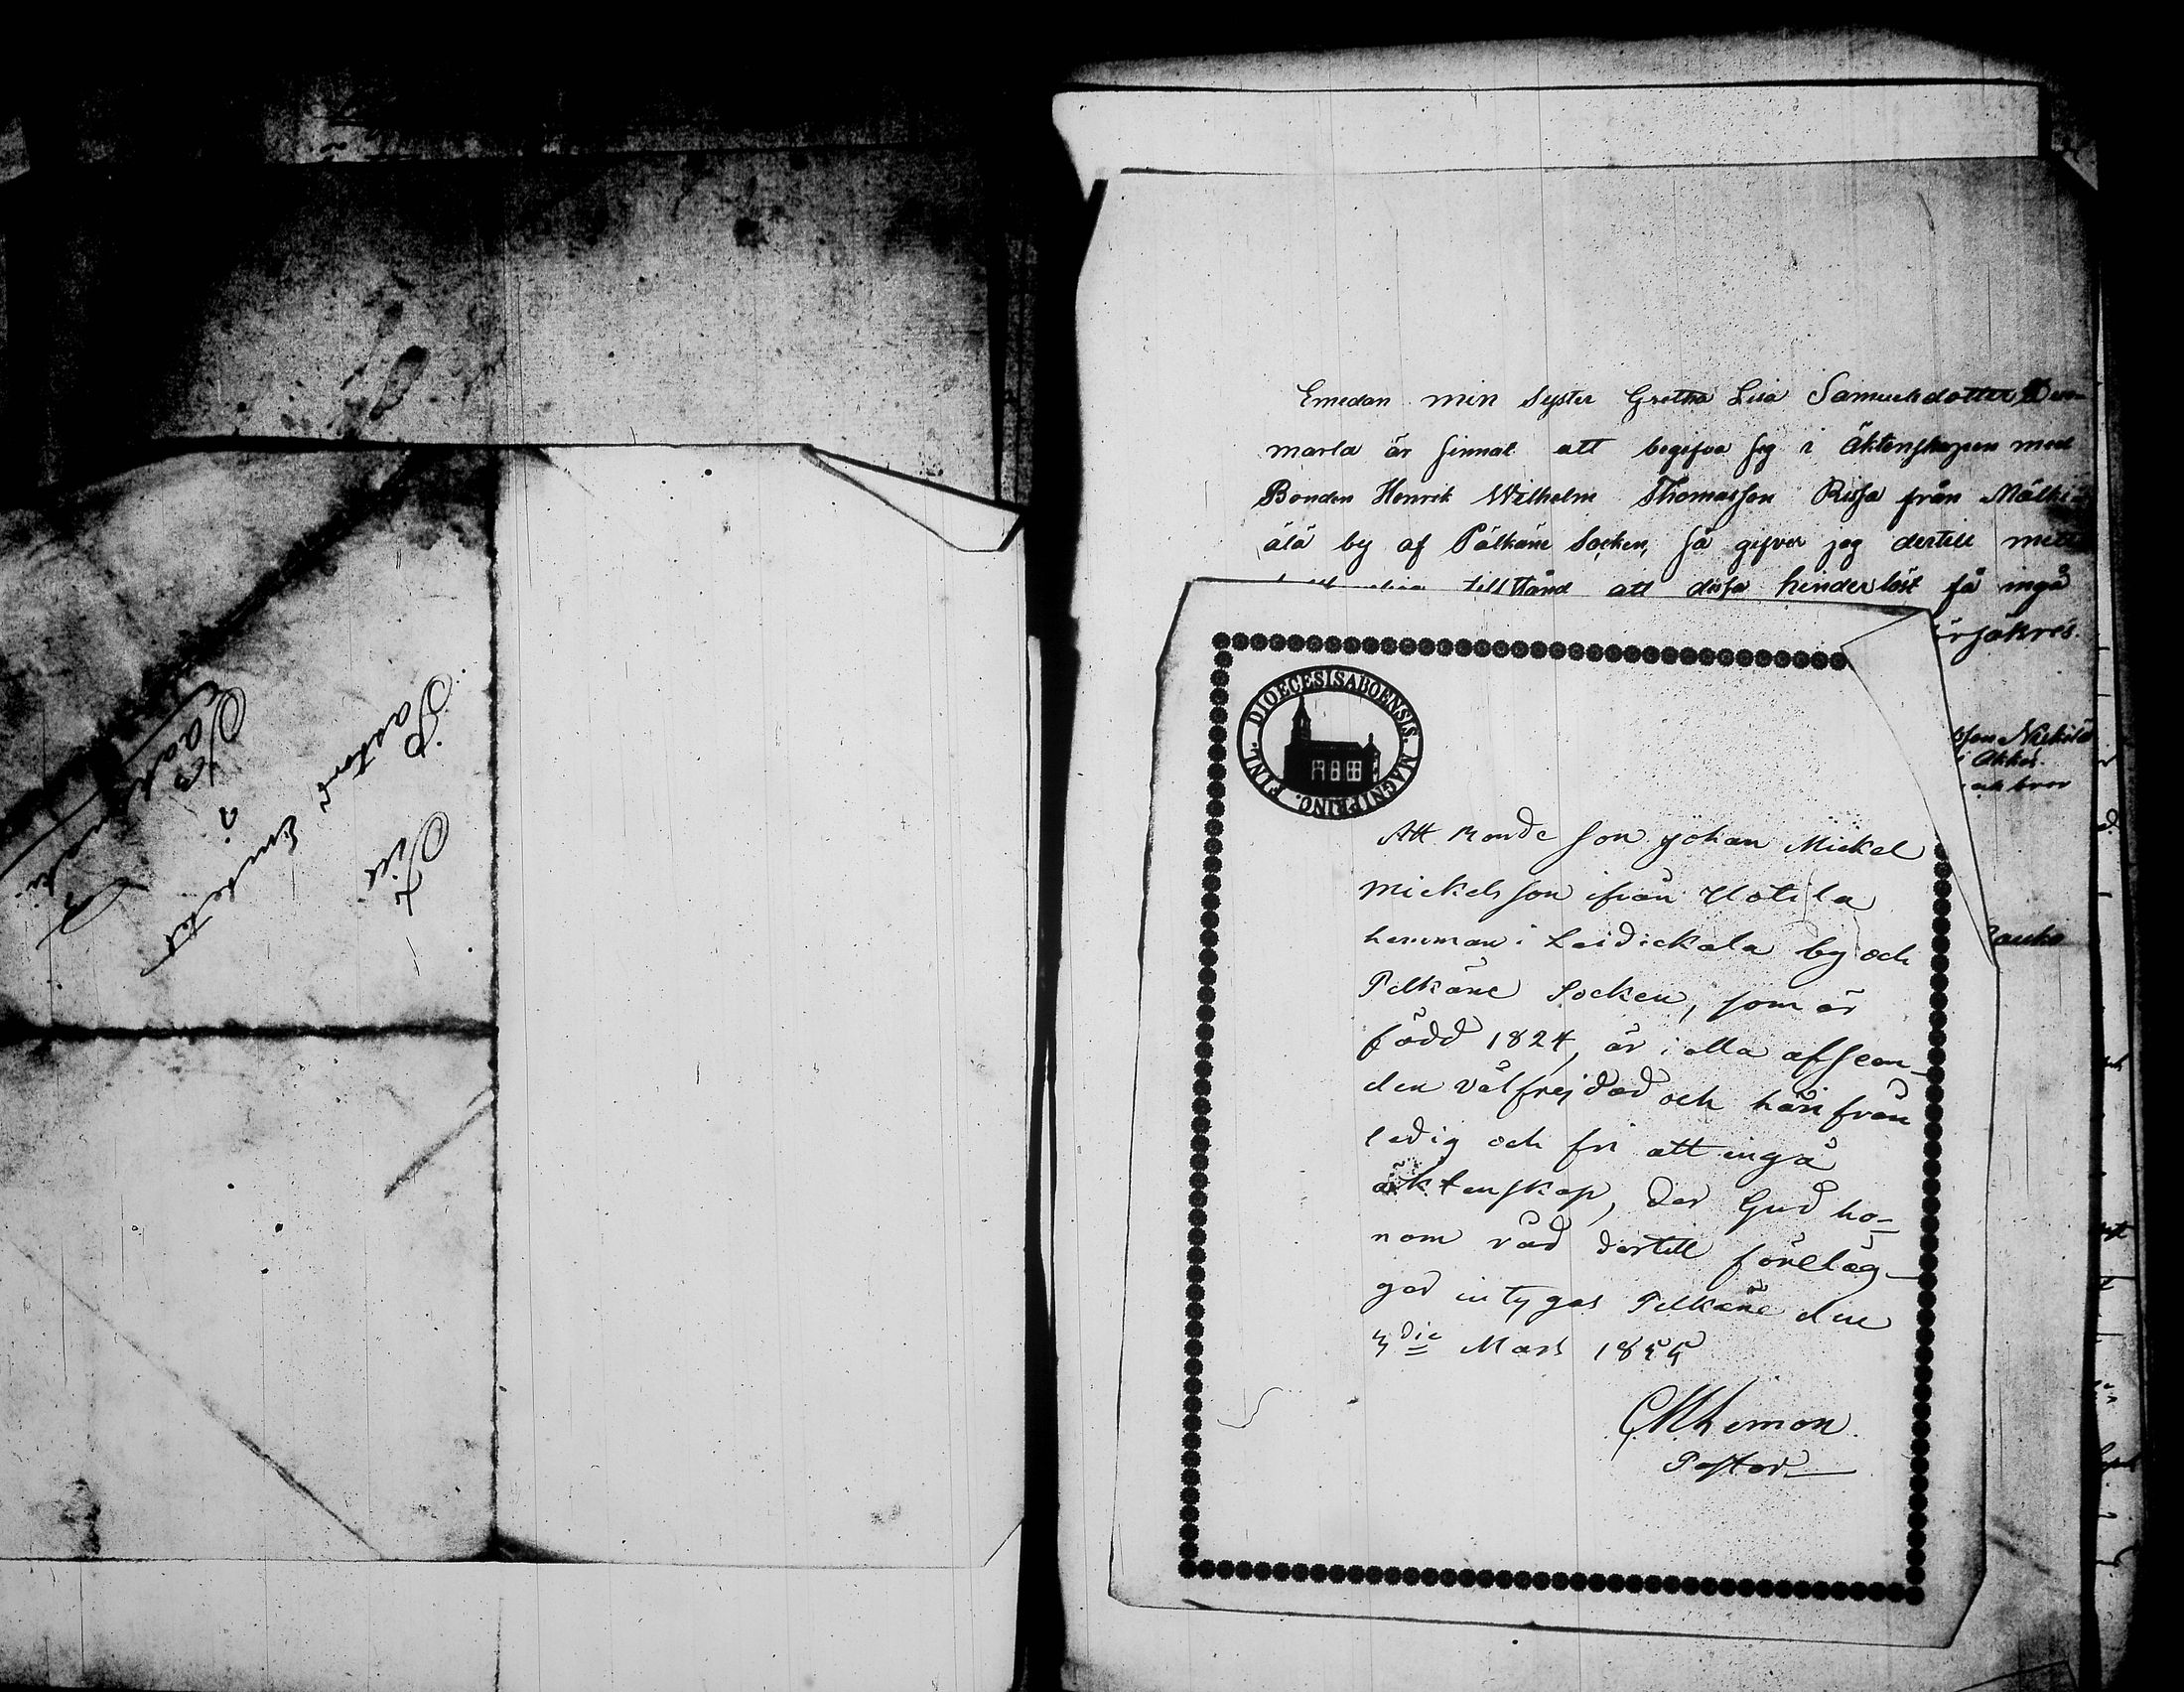 Till
Pastors Embetet
i
Emedan min Syster Gretha Lisa Samuelsdotter
marla är sinnat att begifva sig i Äktenskapen med
Bonden Henrik Wilhelm Thomasson från Mälki-
älä by af Pälkäne Socken, så gifver jag dertill mitt
tillstånd att dessa hinderlöst få ingå
försäkres.
och bror
DIOECESIS ABOENSIS. MAGNI PRINC. FINL.
Att Bonde Son Johan Mickel
Mickelsson ifrån Uotila
hemman i Laidickala by och
Pelkäne Socken, som är
född 1824, är i alla afseen-
den välfrejdad och härifrån
ledig och fri att ingå
äktenskap, der Gud ho-
nom råd dertill föreläg-
ger intygas Pelkäne den
Mars 1855
Pastor